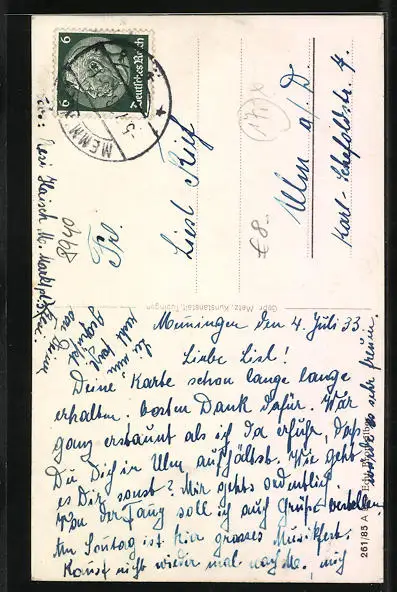 Memmingen den 4. Juli 33.
Liebe Liesl!
Deine Karte schon lange lange
erhalten. besten Dank dafür. War
ganz erstaunt als ich da erfuhr, daß
Du Dich in Ulm aufhältst. Wie geht
es Dir sonst? Mir gehts ordentlich.
Von der Fanny soll ich auch Grüße bestellen.
Am Sonntag ist hier grosses Musikfest.
Kannst nicht wieder mal nach M., mich
würde es sehr freuen.
Sei nun
recht herzl.
gegrüßt
von Deiner
Frl.
Liesl
Ulm a/D.
Karl-Schefoldstr. 4.
€8.-
Deutsches Reich
6
6
MEMM
Gepr. Metz, Kunstanstalt, Tübingen
261/85 A